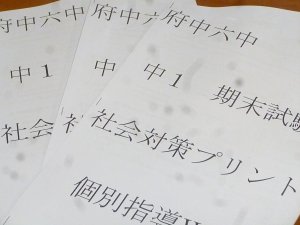 府中六中
中1
社会
府中六中
中
社
府中六中
中1 期末試験
社会対策プリント
個別指導